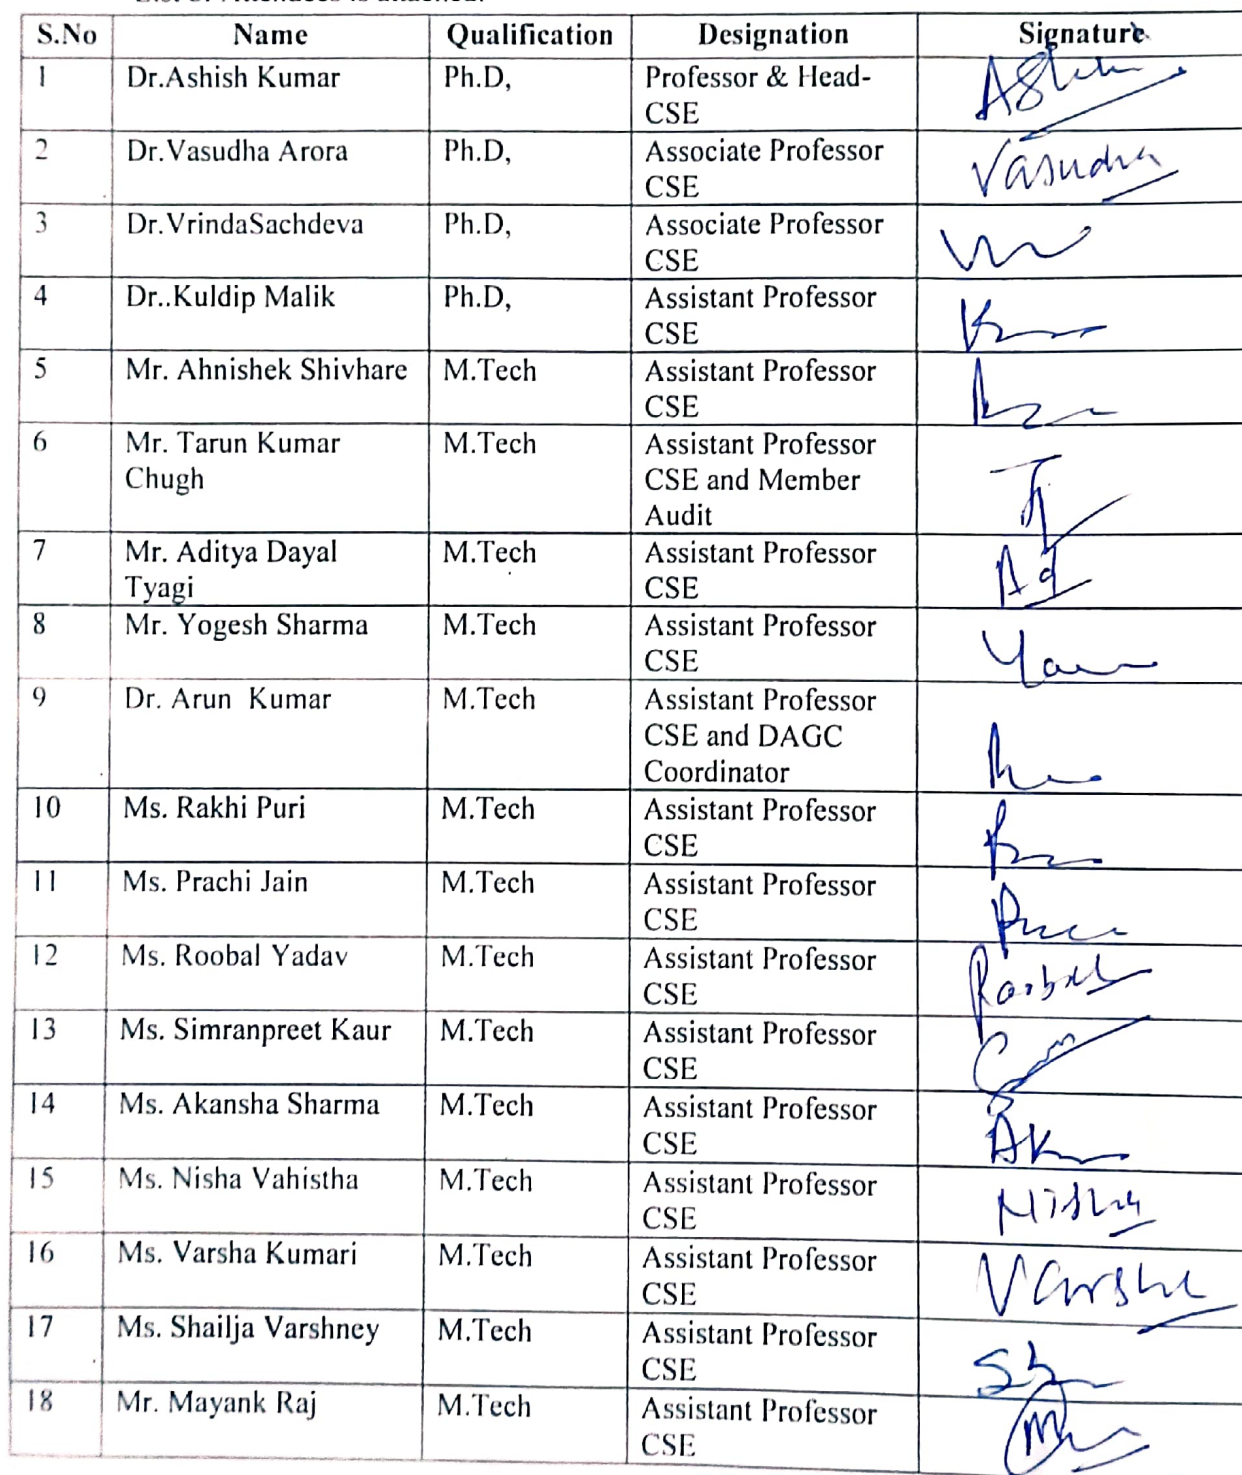 S.No Name Qualification Designation Signature
1 Dr.Ashish Kumar Ph.D, Professor & Head-
CSE
2 Dr.Vasudha Arora Ph.D, Associate Professor Vasudha
CSE
3 Dr.VrindaSachdeva Ph.D, Associate Professor
CSE
4 Dr..Kuldip Malik Ph.D, Assistant Professor
CSE
5 Mr. Ahnishek Shivhare M.Tech Assistant Professor
CSE
6 Mr. Tarun Kumar M.Tech Assistant Professor
Chugh CSE and Member
Audit
7 Mr. Aditya Dayal M.Tech Assistant Professor
Tyagi CSE
8 Mr. Yogesh Sharma M.Tech Assistant Professor
CSE
9 Dr. Arun Kumar M.Tech Assistant Professor
CSE and DAGC
Coordinator
10 Ms. Rakhi Puri M.Tech Assistant Professor
CSE
11 Ms. Prachi Jain M.Tech Assistant Professor
CSE
12 Ms. Roobal Yadav M.Tech Assistant Professor Roobal
CSE
13 Ms. Simranpreet Kaur M.Tech Assistant Professor
CSE
14 Ms. Akansha Sharma M.Tech Assistant Professor
CSE
15 Ms. Nisha Vahistha M.Tech Assistant Professor Nisha
CSE
16 Ms. Varsha Kumari M.Tech Assistant Professor Varsha
CSE
17 Ms. Shailja Varshney M.Tech Assistant Professor
CSE
18 Mr. Mayank Raj M.Tech Assistant Professor
CSE